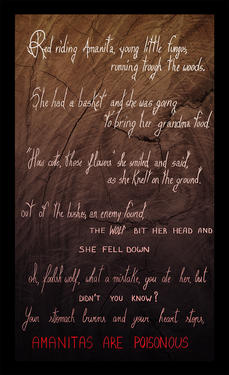 Red riding Amanita, young little fungus,
running trough the woods.
She had a basket and she was going
to bring her grandma food.
"How cute, these flowers" she smiled and said,
as she knelt on the ground.
out of the bushes, an enemy found,
THE WOLF BIT HER HEAD AND
SHE FELL DOWN
oh, foolish wolf, what a mistake, you ate her, but
DIDN'T YOU KNOW?
Your stomach burns and your heart stops,
AMANITAS ARE POISONOUS